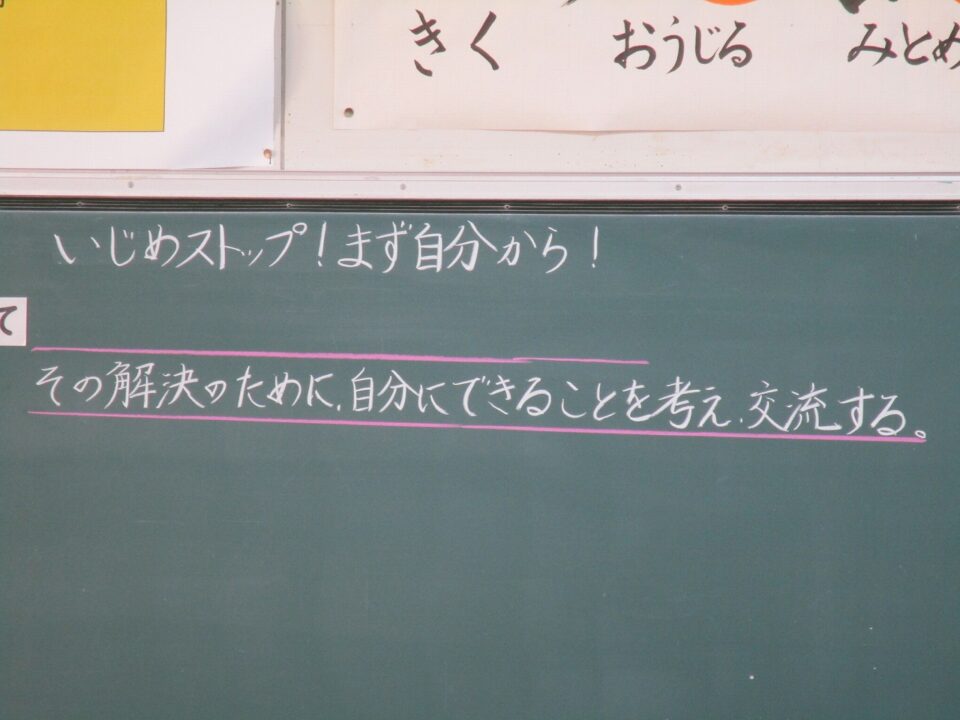 きく おうじる みとめ
いじめストップ！まず自分から！
て
その解決のために、自分にできることを考え、交流する。